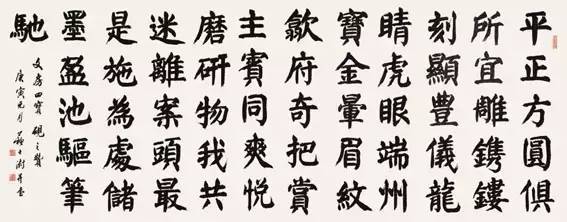 平正方圓俱
所宜雕鎸鏤
刻顯豊儀龍
睛虎眼端州
寶金暈眉紋
歙府奇把賞
主賓同爽悦
磨研物我共
迷離案頭最
是施為處儲
墨盈池驅筆
馳
文房四寶 硯之贊
庚寅元月 蘇士澍并書